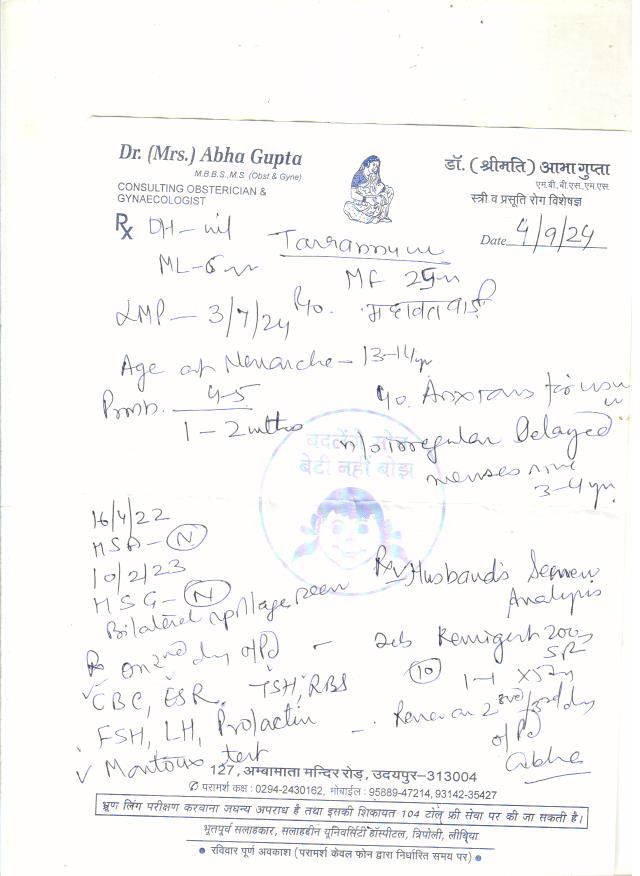 Dr. (Mrs.) Abha Gupta
M.B.B.S., M.S. (Obst & Gyne)
CONSULTING OBSTERICIAN &
GYNAECOLOGIST
डॉ. (श्रीमति) आभा गुप्ता
एम.बी.बी.एस. एम.एस.
स्त्री व प्रसूति रोग विशेषज्ञ
Date 4/9/24
Rx DH - nil
Tarrannum
ML-6
MF
LMP - 3/7/24
R/o.
Age at Menarche - 13-14 yr
4-5
1-2 mths
Irregular Delayed
menses
3-4 yr.
बदलेंगे सोच
बेटी नहीं बोझ
16/4/22
HSA - N
10/2/23
HSG - N
Bilateral spillage seen
Adv Husband's Semen
Analysis
on 2nd day of Pd
200
SR
CBC, ESR, TSH, RBS
10 1-1
FSH, LH, Prolactin
2nd/3rd day
of Pd
Mantoux test
Abha
127, अम्बामाता मन्दिर रोड़, उदयपुर-313004
परामर्श कक्ष : 0294-2430162, मोबाईल : 95889-47214, 93142-35427
भ्रूण लिंग परीक्षण करवाना जघन्य अपराध है तथा इसकी शिकायत 104 टोल फ्री सेवा पर की जा सकती है।
भूतपूर्व सलाहकार, सलाहद्दीन यूनिवर्सिटी हॉस्पीटल, त्रिपोली, लीबिया
• रविवार पूर्ण अवकाश (परामर्श केवल फोन द्वारा निर्धारित समय पर) •